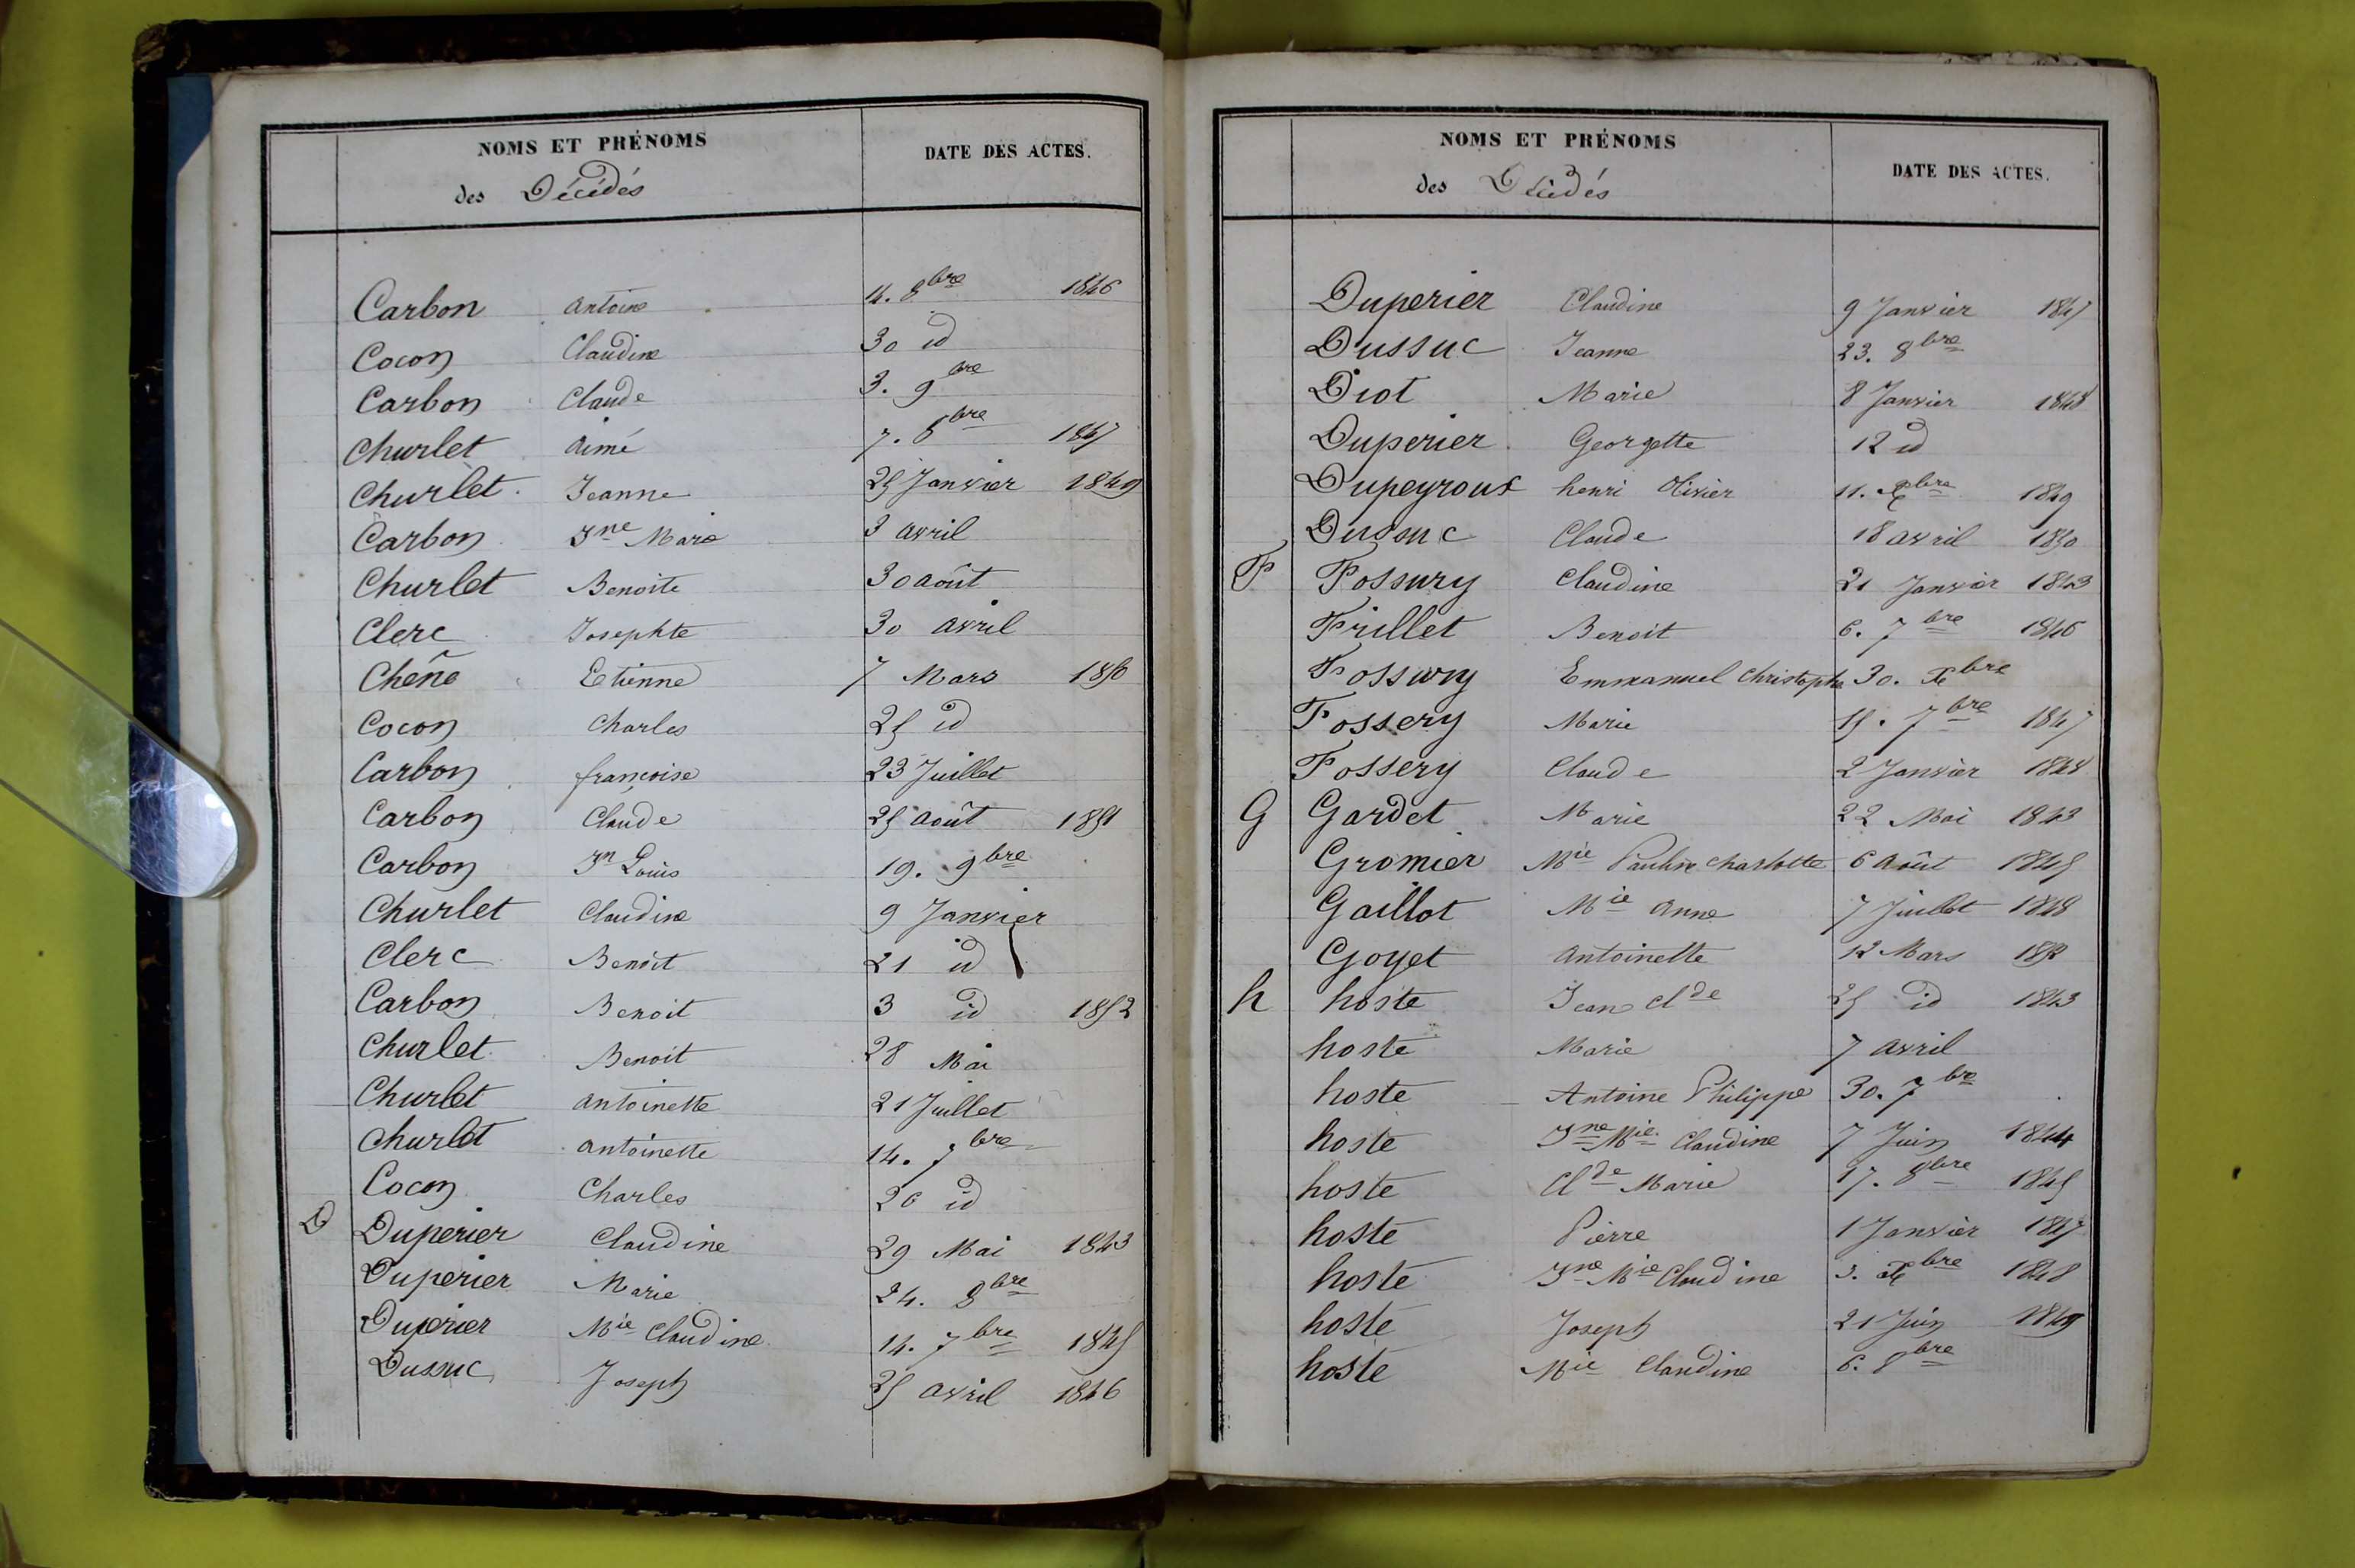 NOMS ET PRÉNOMS
des Décédés
DATE DES ACTES.
Carbon antoine 4. 8bre 1846
Cocon Claudine 30 id
Carbon Claude 3. 9bre
Churlet aimé 7. 8bre 1847
Churlet Jeanne 25 Janvier 1849
Carbon Jne Marie 3 avril
Churlet Benoite 30 août
Clerc Josephte 30 avril
Chêne Etienne 7 Mars 1850
Cocon Charles 25 id
Carbon françoise 23 Juillet
Carbon Claude 25 août 1851
Carbon Jn Louis 19. 9bre
Churlet Claudine 9 Janvier
Clerc Benoit 21 id
Carbon Benoit 3 id 1852
Churlet Benoit 28 Mai
Churlet antoinette 21 Juillet
Churlet antoinette 14. 7bre
Cocon Charles 26 id
D Duperier Claudine 29 Mai 1843
Duperier Marie 24. 8bre
Duperier Mie Claudine 14. 7bre 1845
Dussuc Joseph 25 avril 1846
NOMS ET PRÉNOMS
des Décédés
DATE DES ACTES.
Duperier Claudine 9 Janvier 1847
Dussuc Jeanne 23. 8bre
Diot Marie 8 Janvier 1848
Duperier Georgette 12 id
Dupeyroux henri Olivier 11. Xbre 1849
Dussuc Claude 18 avril 1850
F Fossury Claudine 21 Janvier 1843
Frillet Benoit 6. 7bre 1846
Fossury Emmanuel Christophe 30. Xbre
Fossery Marie 15. 7bre 1847
Fossery Claude 2 Janvier 1848
G Gardet Marie 22 Mai 1843
Gromier Mie Pauline Charlotte 6 Août 1845
Gaillot Mie Anne 7 Juillet 1848
Goyet Antoinette 12 Mars 1852
h hoste Jean Clde 25 id 1843
hoste Marie 7 avril
hoste Antoine Philippe 30. 7bre
hoste Jne Mie Claudine 7 Juin 1844
hoste Clde Marie 17. 8bre 1845
hoste Pierre 1 Janvier 1847
hoste Jne Mie Claudine 3. Xbre 1848
hoste Joseph 21 Juin 1849
hoste Mie Claudine 6. 8bre